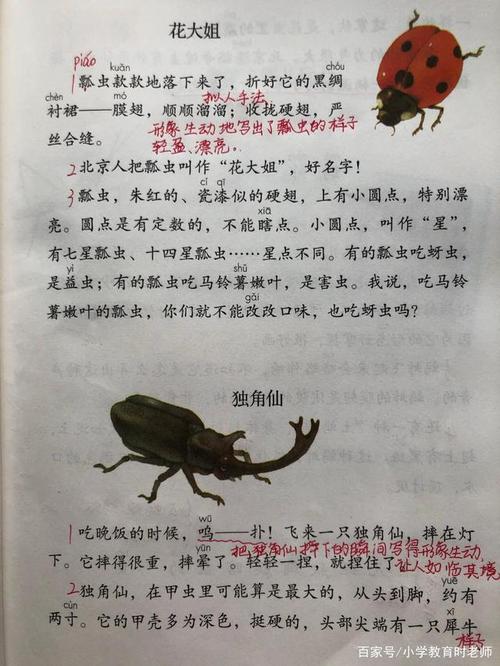 花大姐
piáo kuǎn chóu
1瓢虫款款地落下来了，折好它的黑绸
chèn mó 拟人手法
衬裙——膜翅，顺顺溜溜；收拢硬翅，严
丝合缝。形象生动地写出了瓢虫的样子
轻盈、漂亮。
2北京人把瓢虫叫作“花大姐”，好名字！
cí qī
3瓢虫，朱红的、瓷漆似的硬翅，上有小圆点，特别漂
xiā
亮。圆点是有定数的，不能瞎点。小圆点，叫作“星”，
有七星瓢虫、十四星瓢虫……星点不同。有的瓢虫吃蚜虫，
yì shǔ
是益虫；有的瓢虫吃马铃薯嫩叶，是害虫。我说，吃马铃
gǎi
薯嫩叶的瓢虫，你们就不能改改口味，也吃蚜虫吗？
独角仙
wū
1吃晚饭的时候，呜——扑！飞来一只独角仙，摔在灯
把独角仙摔下的瞬间写得形象生动，
yūn
下。它摔得很重，摔晕了。轻轻一捏，就捏住了让人如临其境
yuē
2独角仙，在甲虫里可能算是最大的，从头到脚，约有
cùn xī
两寸。它的甲壳多为深色，挺硬的，头部尖端有一只犀牛
样子
百家号/小学教育时老师